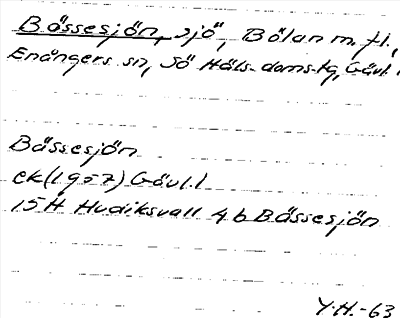 Bässesjön, sjö, Bölan m. fl.,
Enångers sn, Sö Häls. doms.tg, Gävl. l.
Bässesjön
ek (1957) Gävl. l
15H Hudiksvall 4b Bässesjön
Y.H.-63